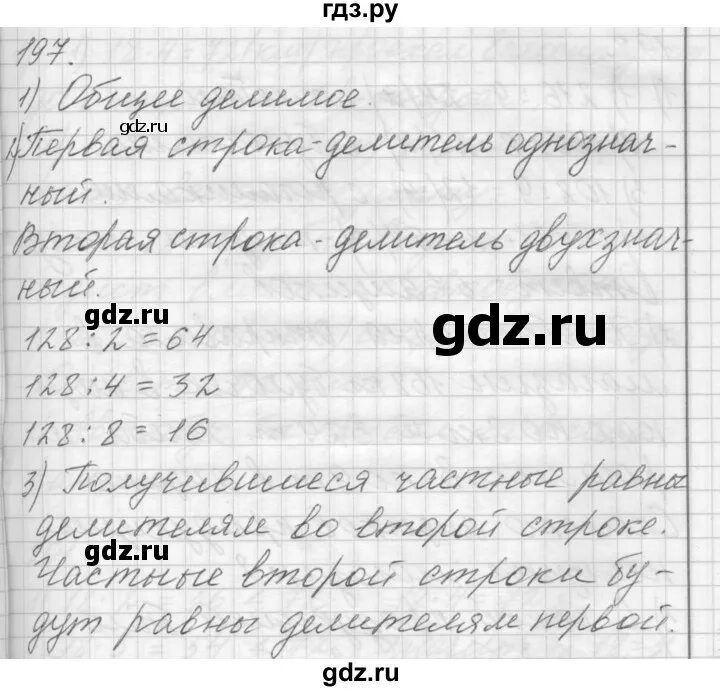 гдз.ру
197.
1) Общее делимое.
gdz.ru
2) Первая строка - делитель однознач-
ный.
Вторая строка - делитель двухзнач-
ный.
gdz.ru
gdz.ru
128 : 2 = 64
128 : 4 = 32
128 : 8 = 16
3) Получившиеся частные равны
делителям во второй строке.
gdz.ru
Частные второй строки бу-
дут равны делителям первой.
gdz.ru